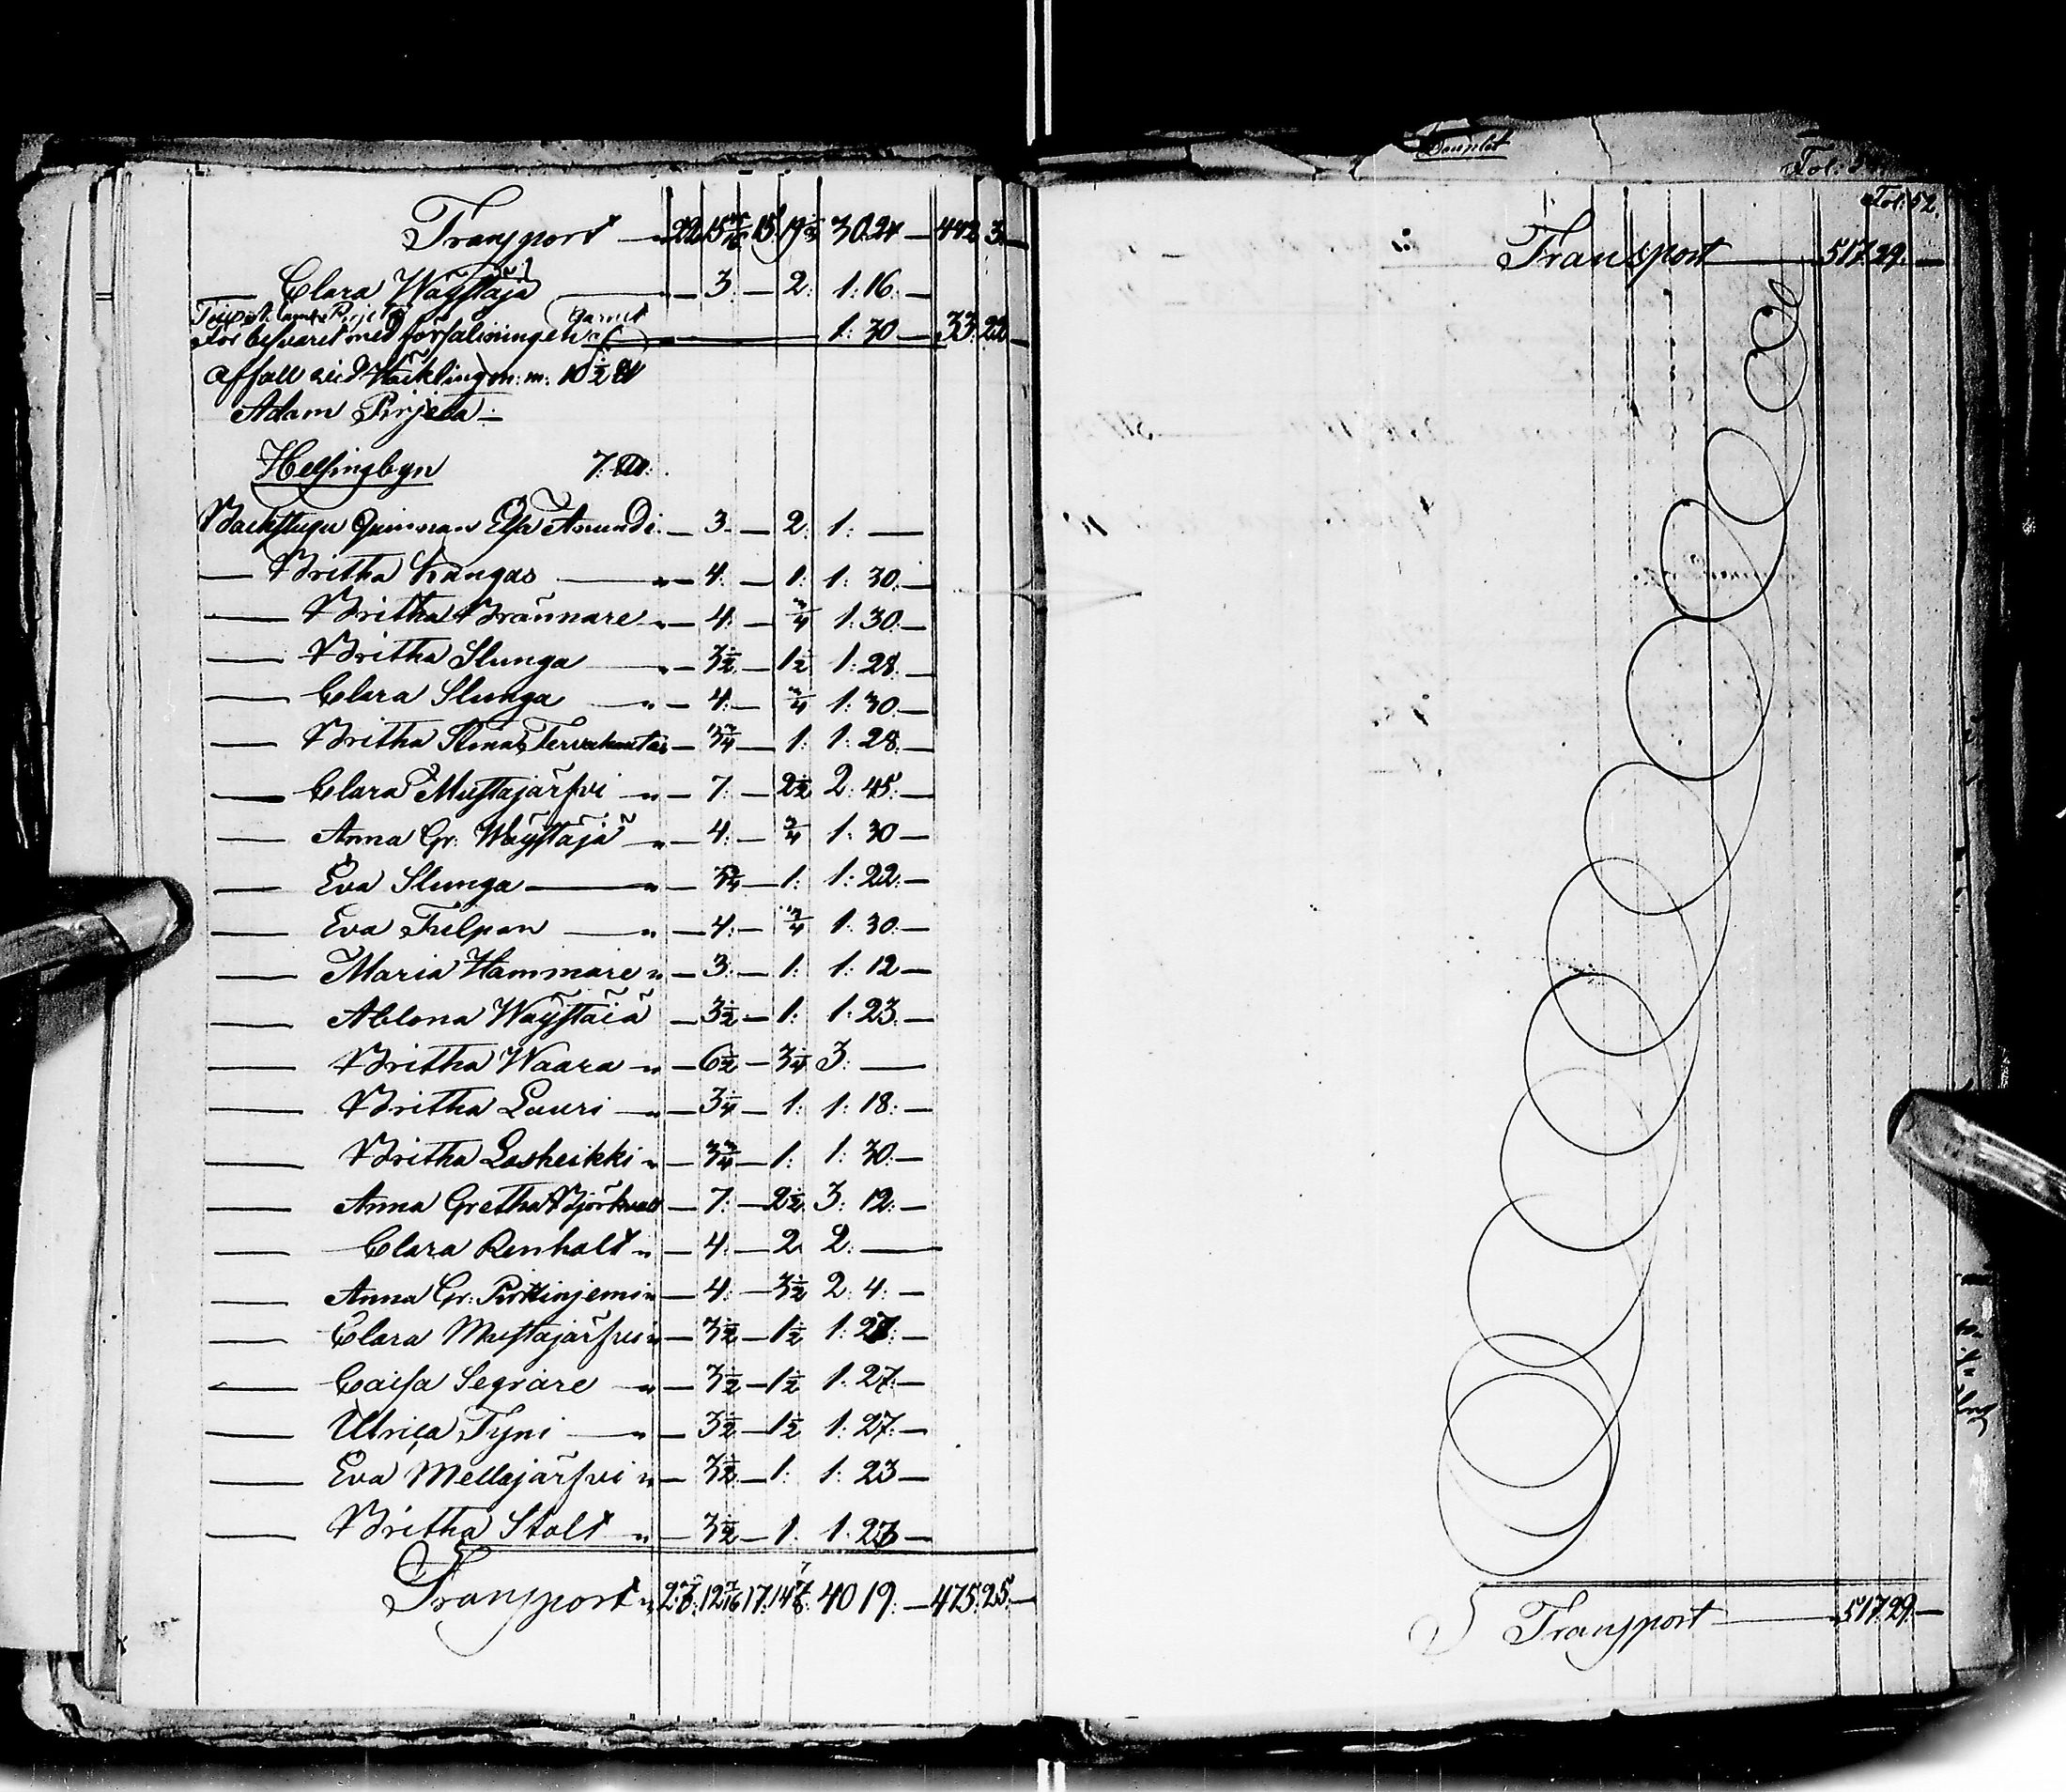 Transport — 22 15 7/16 15 19 3/8 30 24 — 442 3 —
— Clara Wäÿstäjä — 3: — 2: 1: 16. —
För besväret med försalningen af Garnet 1: 30 — 33: 22 —
Affall vid Häckling m: m: 10 1/2 ℔
Adam Pirjetä —
Helsingbyn 7: ℔:
Backstugu Qwinnan Elsa Anundi — 3. — 2. 1: —
— Britha Kangas — 4: — 1: 1: 30. —
— Britha Brännare — 4: — 3/4 1: 30. —
— Britha Slunga — 3 1/2 — 1 1/2 1: 28. —
— Clara Slunga — 4: — 3/4 1: 30. —
— Britha Stina Tervahauta — 3 3/4 — 1: 1: 28. —
— Clara Mustajärfvi — 7. — 2 1/2 2: 45. —
— Anna Gr: Wäÿstäjä — 4: — 3/4 1: 30
— Eva Slunga — 3 3/4 — 1: 1: 22. —
— Eva Tulpan — 4: — 3/4 1: 30. —
— Maria Hammare — 3. — 1: 1: 12 —
— Ablona Wäÿstäiä — 3 1/2 — 1: 1: 23. —
— Britha Waara — 6 1/2 — 3 1/4 3: —
— Britha Lauri — 3 1/4 — 1: 1: 18: —
— Britha Lasheikki — 3 3/4 — 1: 1: 30. —
— Anna Gretha Björkvall — 7. — 2 1/2 3: 12: —
— Clara Renholt — 4. — 2 2: —
— Anna Gr: — 4: — 3 1/2 2: 4: —
— Clara Mustajärfvi — 3 1/2 — 1 1/2 1: 27: —
— Caisa Segrare — 3 1/2 — 1 1/2 1: 27. —
— Ulrica Tyni — 3 1/2 — 1 1/2 1: 27. —
— Eva Mellajärfvi — 3 1/2 — 1: 1: 23 —
— Britha Stolt — 3 1/2 — 1. 1: 23 —
Transport 27: 12 7/16 17. 14 7/8 40 19. — 475: 25. —
Fol. 52.
Transport — 517. 29. —
Transport — 517. 29. —